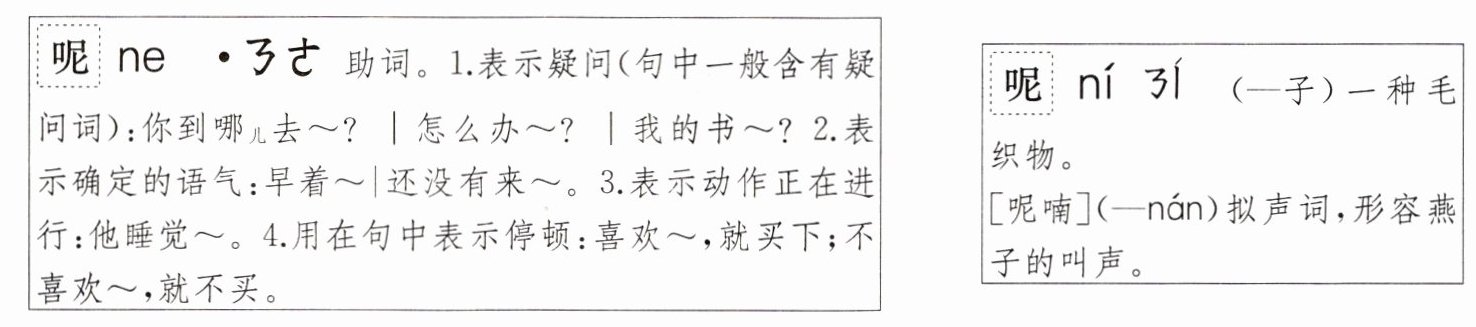 呢 ne ·ㄋㄜ 助词。1.表示疑问(句中一般含有疑
问词):你到哪儿去～? ｜怎么办～? ｜我的书～? 2.表
示确定的语气:早着～｜还没有来～。3.表示动作正在进
行:他睡觉～。4.用在句中表示停顿:喜欢～,就买下;不
喜欢～,就不买。
呢 ní ㄋㄧˊ (—子)一种毛
织物。
[呢喃](—nán)拟声词,形容燕
子的叫声。